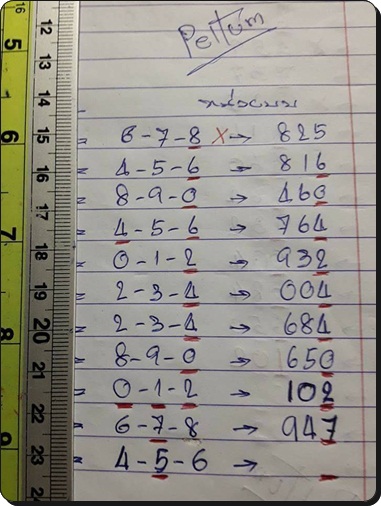 Pettom
6-7-8 x→ 825
4-5-6 → 816
8-9-0 → 460
4-5-6 → 764
0-1-2 → 932
2-3-4 → 004
2-3-4 → 684
8-9-0 → 650
0-1-2 → 102
6-7-8 → 947
4-5-6 →
16 5 6 7 8 9
12 13 14 15 16 17 18 19 20 21 22 23 24